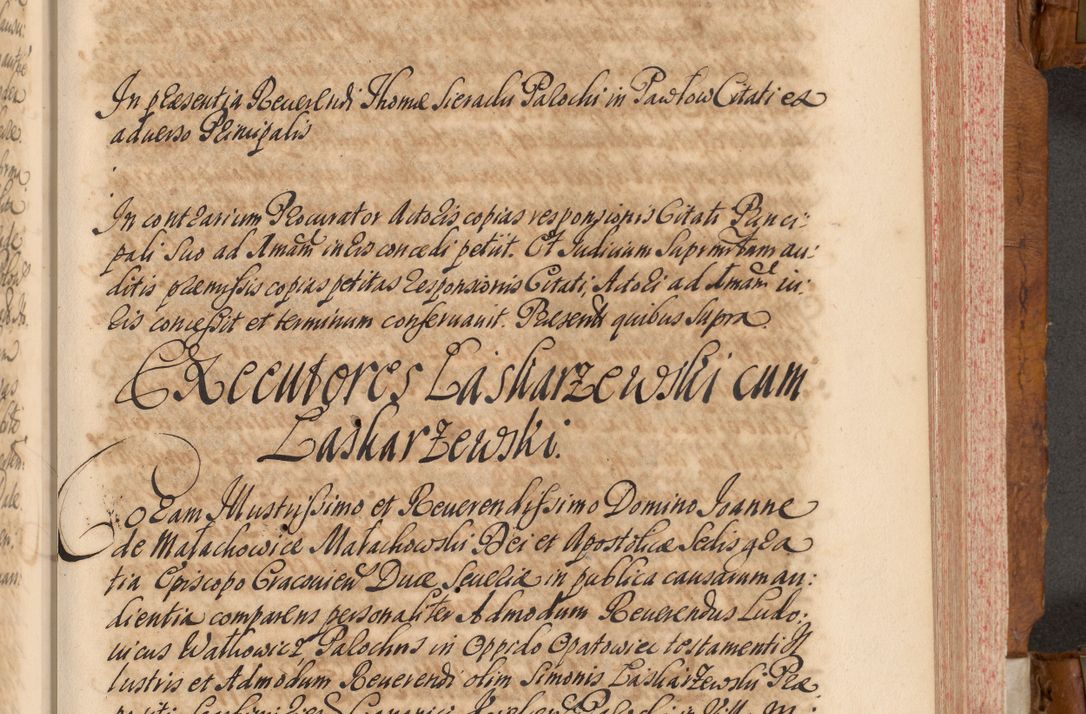 In præsentia Reverendi Thomæ Sieradii Parochi in Pawłow Citati ex
adverso Principalis
In contrarium Procurator Actoris copias responsionis Citati Princi:
pali suo ad Amām in Eis concedi petiit. Et Judicium Supm̄ tam au:
ditis præmissis copias petitas Responsionis Citati, Actori ad Amām in:
Eis concessit et terminum conservavit. Præsentt quibus supra
Executores Laskarzewski cum
Laskarzewski.
Coram Illustrissimo et Reverendissimo Domino Joanne
de Małachowice Małachowski Dei et Apostolicæ Sedis gra
tia Episcopo Cracovien Duce Severiæ in publica causarum au:
dientia comparens personaliter Admodum Reverendus Ludo:
vicus Walkowicz Parochus in Oppido Opatowiec testamenti Il
lustris et Admodum Reverendi olim Simonis Laskarzewski Præ